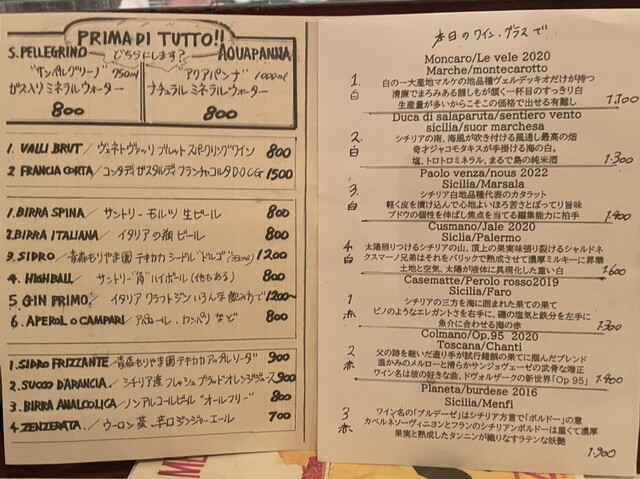 PRIMA DI TUTTO!!
どちらにします?
S.PELLEGRINO
"サンペルグリーノ" 750ml
ガス入りミネラルウォーター
800
AQUAPANNA
"アクアパンナ" 1000ml
ナチュラルミネラルウォーター
800
1. VALLI BRUT/ ヴェネト ヴァッリ ブルット スパークリングワイン 800
2. FRANCIA CORTA/ コンタディ カスタルディ フランチャコルタD.O.C.G 1500
1. BIRRA SPINA/ サントリー モルツ 生ビール 800
2. BIRRA ITALIANA/ イタリアの瓶ビール 800
3. SIDRO/ 青森もりやま園 テキカカ シードル"ドルゴ" 1200
4. HIGHBALL/ サントリー"角"ハイボール(他もある) 800
5. GIN PRIMO/ イタリア クラフトジン いろんな飲みわで 1200~
6. APEROL O CAMPARI/ アペロール、カンパリなど 800
1. SIDRO FRIZZANTE/ 青森もりやま園 テキカカアップルソーダ 900
2. SUCCO D'ARANCIA/ シチリア産 フレッシュブラッドオレンジジュース 900
3. BIRRA ANALCOLICA/ ノンアルコールビール "オールフリー" 800
4. ZENZERATA/ ウーロン茶、辛口ジンジャーエール 700
本日のワイン、グラスで
Moncaro/Le vele 2020
Marche/montecarotto
1. 白
白の一大産地マルケの地品種ヴェルデッキオだけが持つ
清廉でまろみある誰しもが頷く一杯目のすっきり白
生産量が多いからこそこの価格で出せる有難し
1.100
Duca di salaparuta/sentiero vento
sicilia/suor marchesa
2. 白
シチリアの南、海風が吹き付ける風通し最高の畑
奇才ジャコモタキスが手掛ける海の白。
塩、トロトロミネラル、まるで島の純米酒
1.300
Paolo venza/nous 2022
Sicilia/Marsala
3. 白
シチリア白地品種代表のカタラット
軽く皮を漬け込んで心地よいほろ苦さとぽってり旨味
ブドウの個性を伸ばし焦点を当てる編集能力に拍手
1.400
Cusmano/Jale 2020
Sicilia/Palermo
4 白
太陽照りつけるシチリアの山、頂上の果実味張り裂けるシャルドネ
クスマーノ兄弟はそれをバリックで熟成させて濃厚ミルキーに昇華
土地と空気、太陽が液体に具現化した重い白
1.600
Casematte/Perolo rosso2019
Sicilia/Faro
1 赤
シチリアの三方を海に囲まれた果ての果て
ピノのようなエレガントさを右手に、磯の塩気と鉄分を左手に
魚介に合わせる海の赤
1.300
Colmano/Op.95 2020
Toscana/Chanti
2 赤
父の跡を継いだ造り手が試行錯誤の果てに掴んだブレンド
温かみのメルローと滑らかサンジョヴェーゼの武骨な端正
ワイン名は彼の好きな曲、ドヴォルザークの新世界「Op 95」
1.400
Planeta/burdese 2016
Sicilia/Menfi
3 赤
ワイン名の「ブルデーゼ」はシチリア方言で「ボルドー」の意
カベルネソーヴィニヨンとフランのシチリアンボルドーは重くて濃厚
果実と熟成したタンニンが織りなすラテンな妖艶
1.900